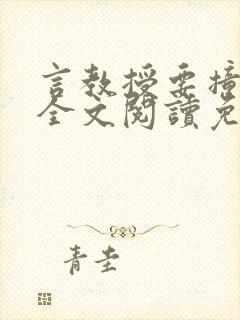 言教授要撞
全文閱讀免
青圭